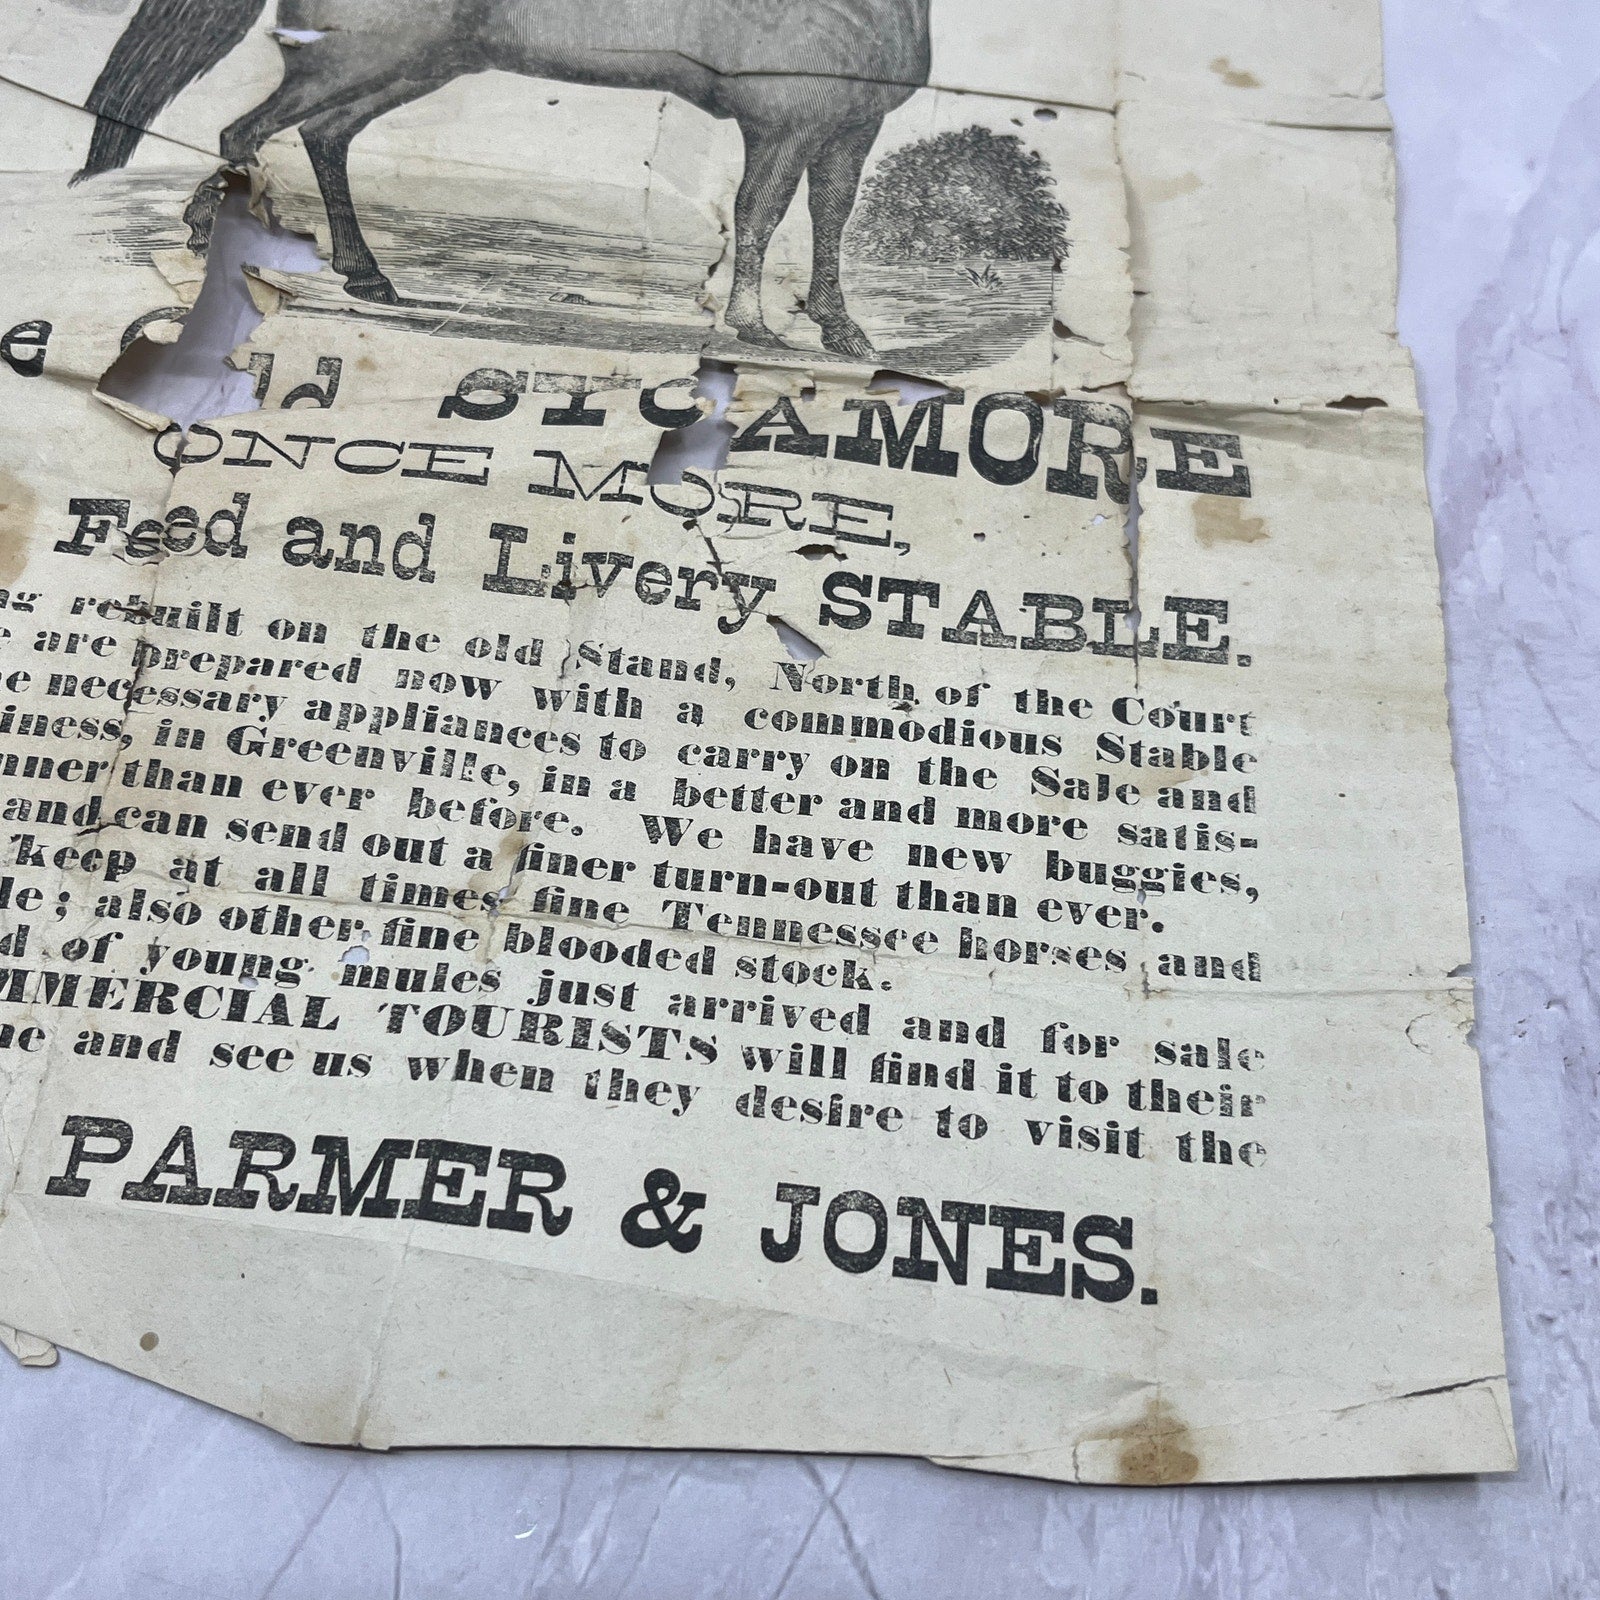 e Old SYCAMORE
ONCE MORE,
Feed and Livery STABLE.
ng rebuilt on the old Stand, North of the Court
e are prepared now with a commodious Stable
e necessary appliances to carry on the Sale and
iness, in Greenville, in a better and more satis-
nner than ever before. We have new buggies,
and can send out a finer turn-out than ever.
keep at all times fine Tennessee horses and
le; also other fine blooded stock.
d of young mules just arrived and for sale
MMERCIAL TOURISTS will find it to their
ne and see us when they desire to visit the
PARMER & JONES.